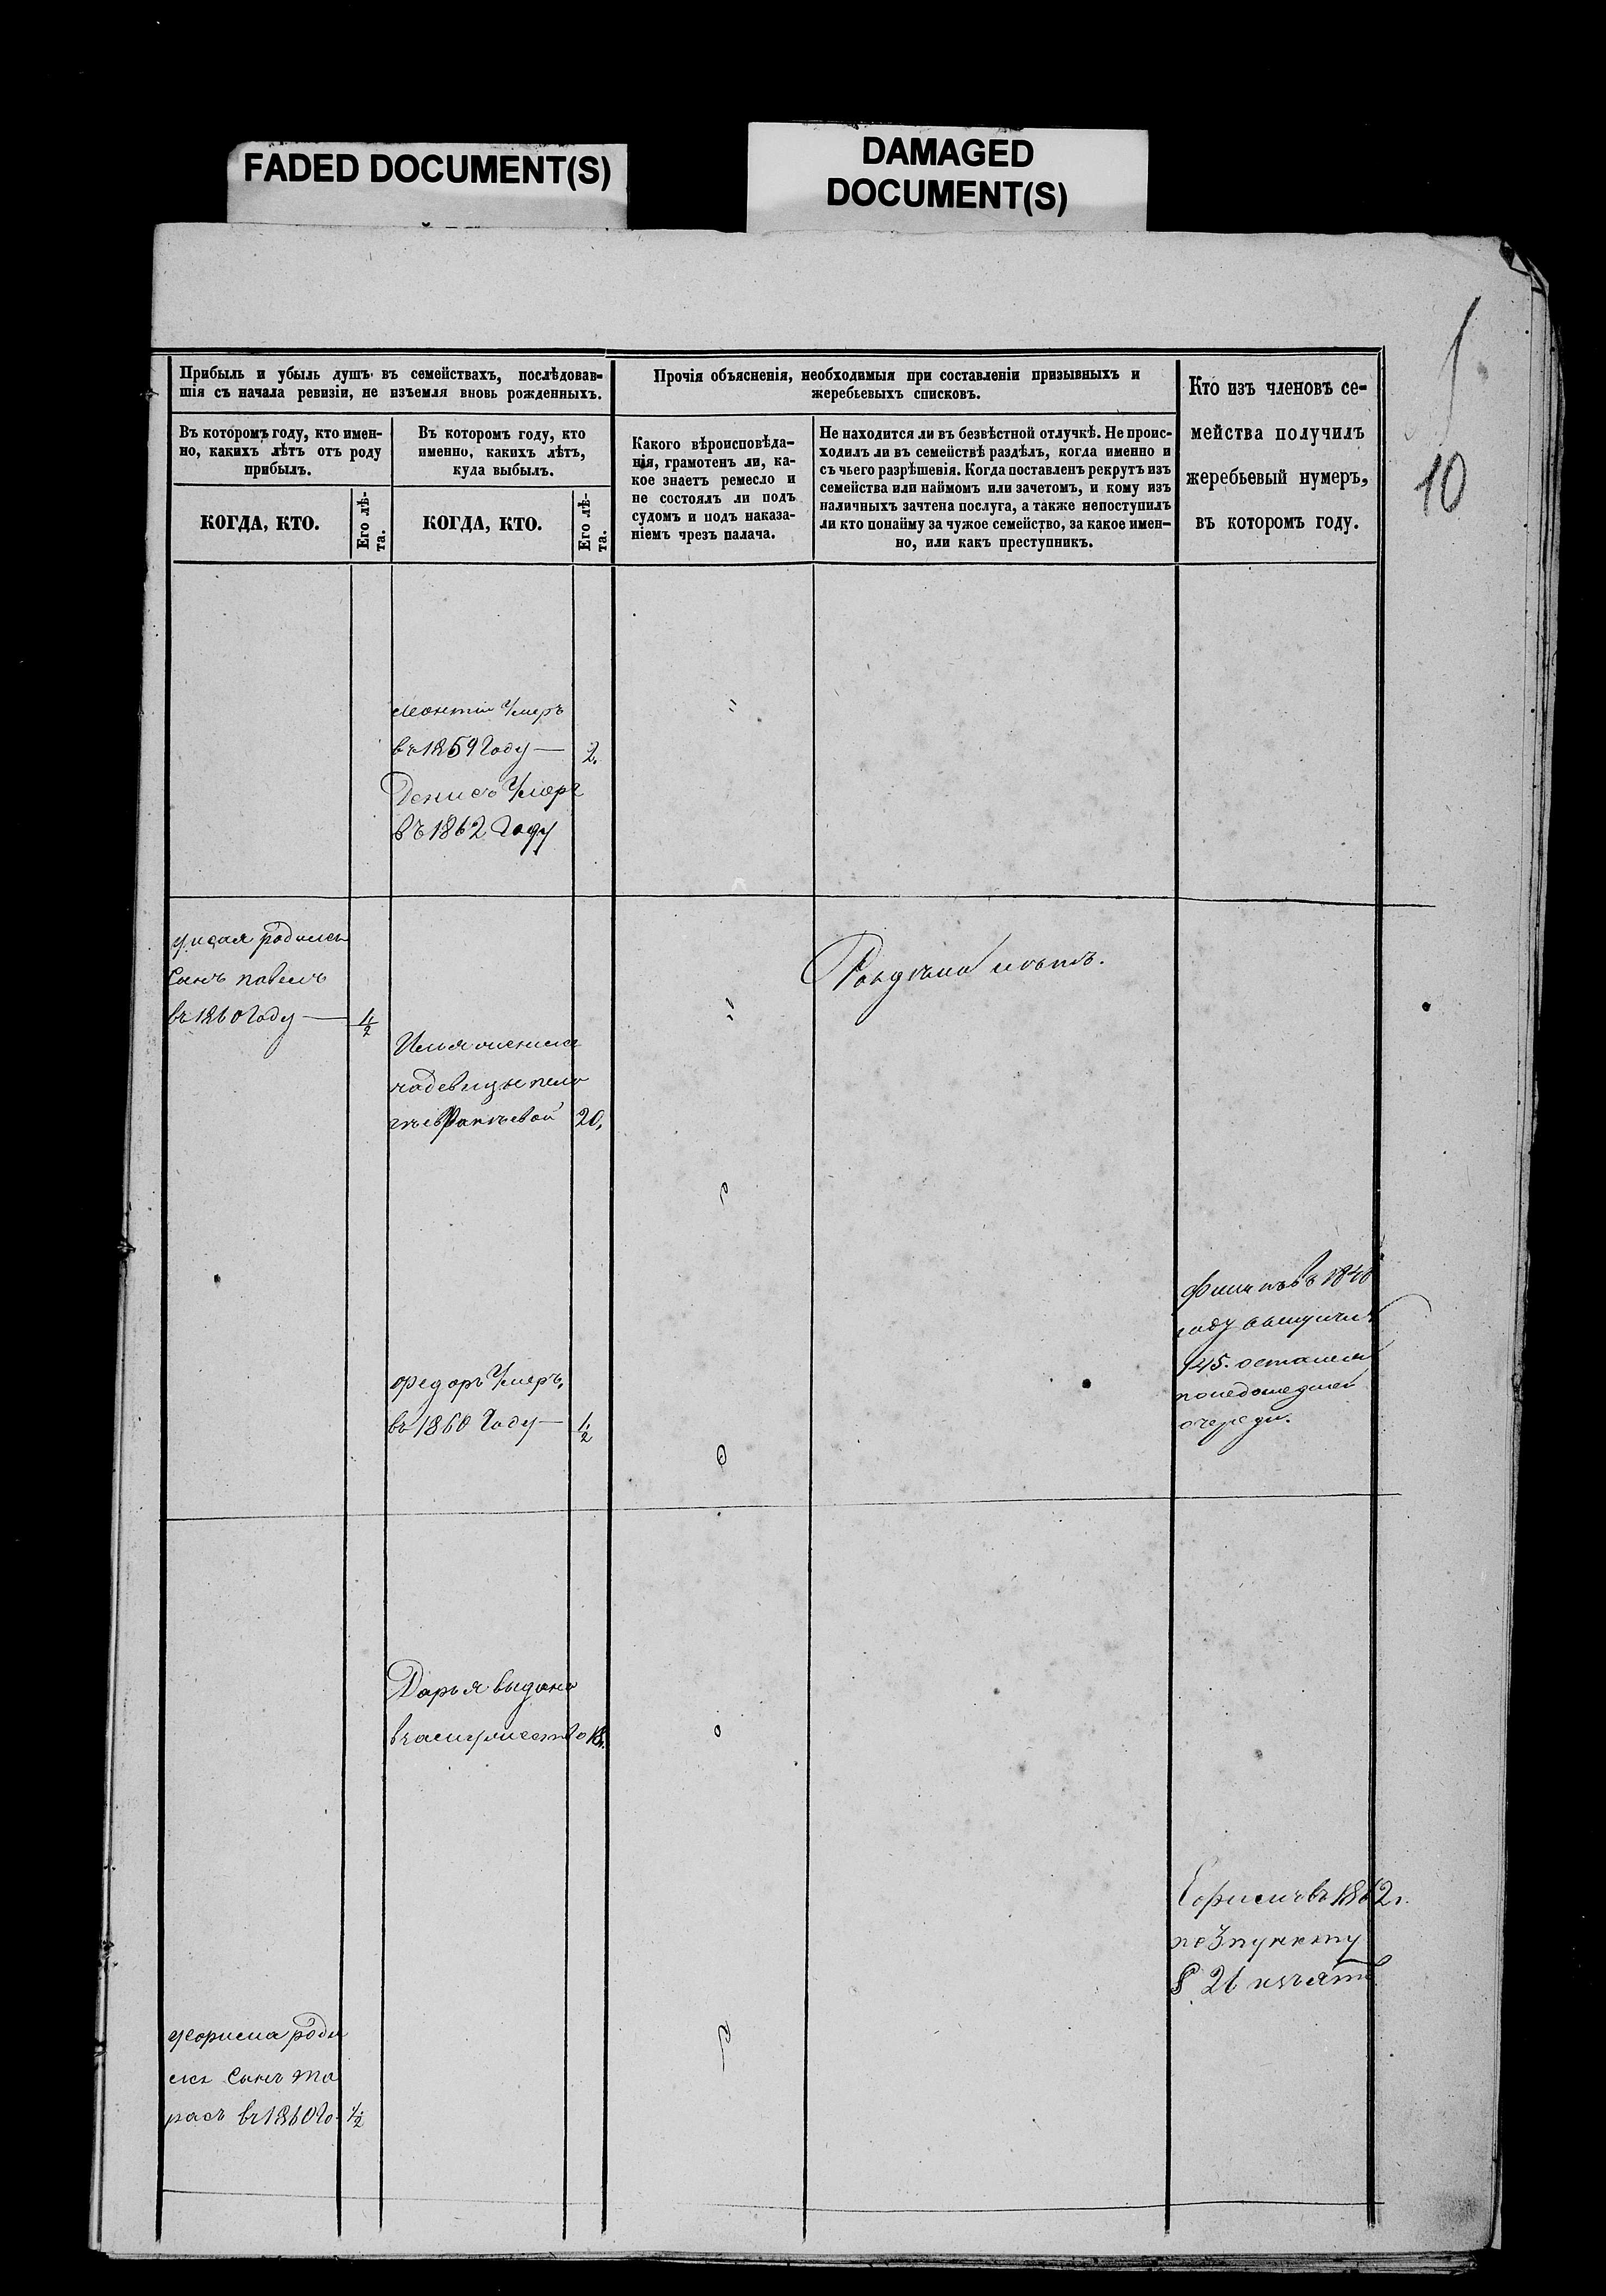 FADED DOCUMENT(S)
DAMAGED
DOCUMENT(S)
10
Прибыль и убыль душъ въ семействахъ, послѣдовав-
шія съ начала ревизіи, не изъемля вновь рожденныхъ.
Прочія объясненія, необходимыя при составленіи призывныхъ и
жеребьевыхъ списковъ.
Кто изъ членовъ се-
мейства получилъ
жеребьевый нумеръ,
въ которомъ году.
Въ которомъ году, кто имен-
но, какихъ лѣтъ отъ роду
прибылъ.
Въ которомъ году, кто
именно, какихъ лѣтъ,
куда выбылъ.
Какого вѣроисповѣда-
нія, грамотенъ ли, ка-
кое знаетъ ремесло и
не состоялъ ли подъ
судомъ и подъ наказа-
ніемъ чрезъ палача.
Не находится ли въ безвѣстной отлучкѣ. Не проис-
ходилъ ли въ семействѣ раздѣлъ, когда именно и
съ чьего разрѣшенія. Когда поставленъ рекрутъ изъ
семейства или наймомъ или зачетомъ, и кому изъ
наличныхъ зачтена послуга, а также непоступилъ
ли кто понайму за чужое семейство, за какое имен-
но, или какъ преступникъ.
КОГДА, КТО.
Его лѣ-
та.
КОГДА, КТО.
Его лѣ-
та.
леонтій Умеръ
въ 1859 Году — 2.
Денисъ Умеръ
въ 1862 Году
родился
Сынъ павелъ
въ 1860 Году — 1/2
20,
въ 1840
году
145. остался
очереди.
федоръ Умеръ,
въ 1860 Году — 1/2
Дарья выдана
18.
въ 1862 г.
по 3 пункту
§ 26 изъятъ
роди
лся Сынъ та
расъ въ 1860 Го. 1/2